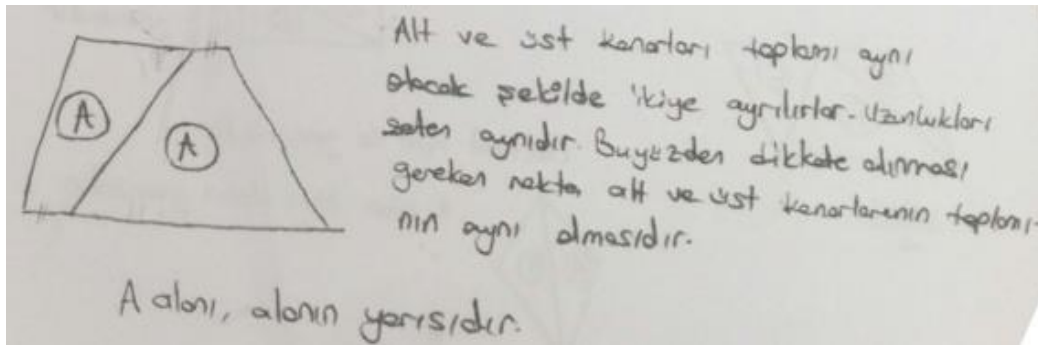 A
A
Alt ve üst kenarları toplamı aynı
olacak şekilde ikiye ayrılırlar. Uzunlukları
zaten aynıdır. Buyüzden dikkate alınması
gereken nokta, alt ve üst kenarlarının toplamı-
nın aynı olmasıdır.
A alanı, alanın yarısıdır.